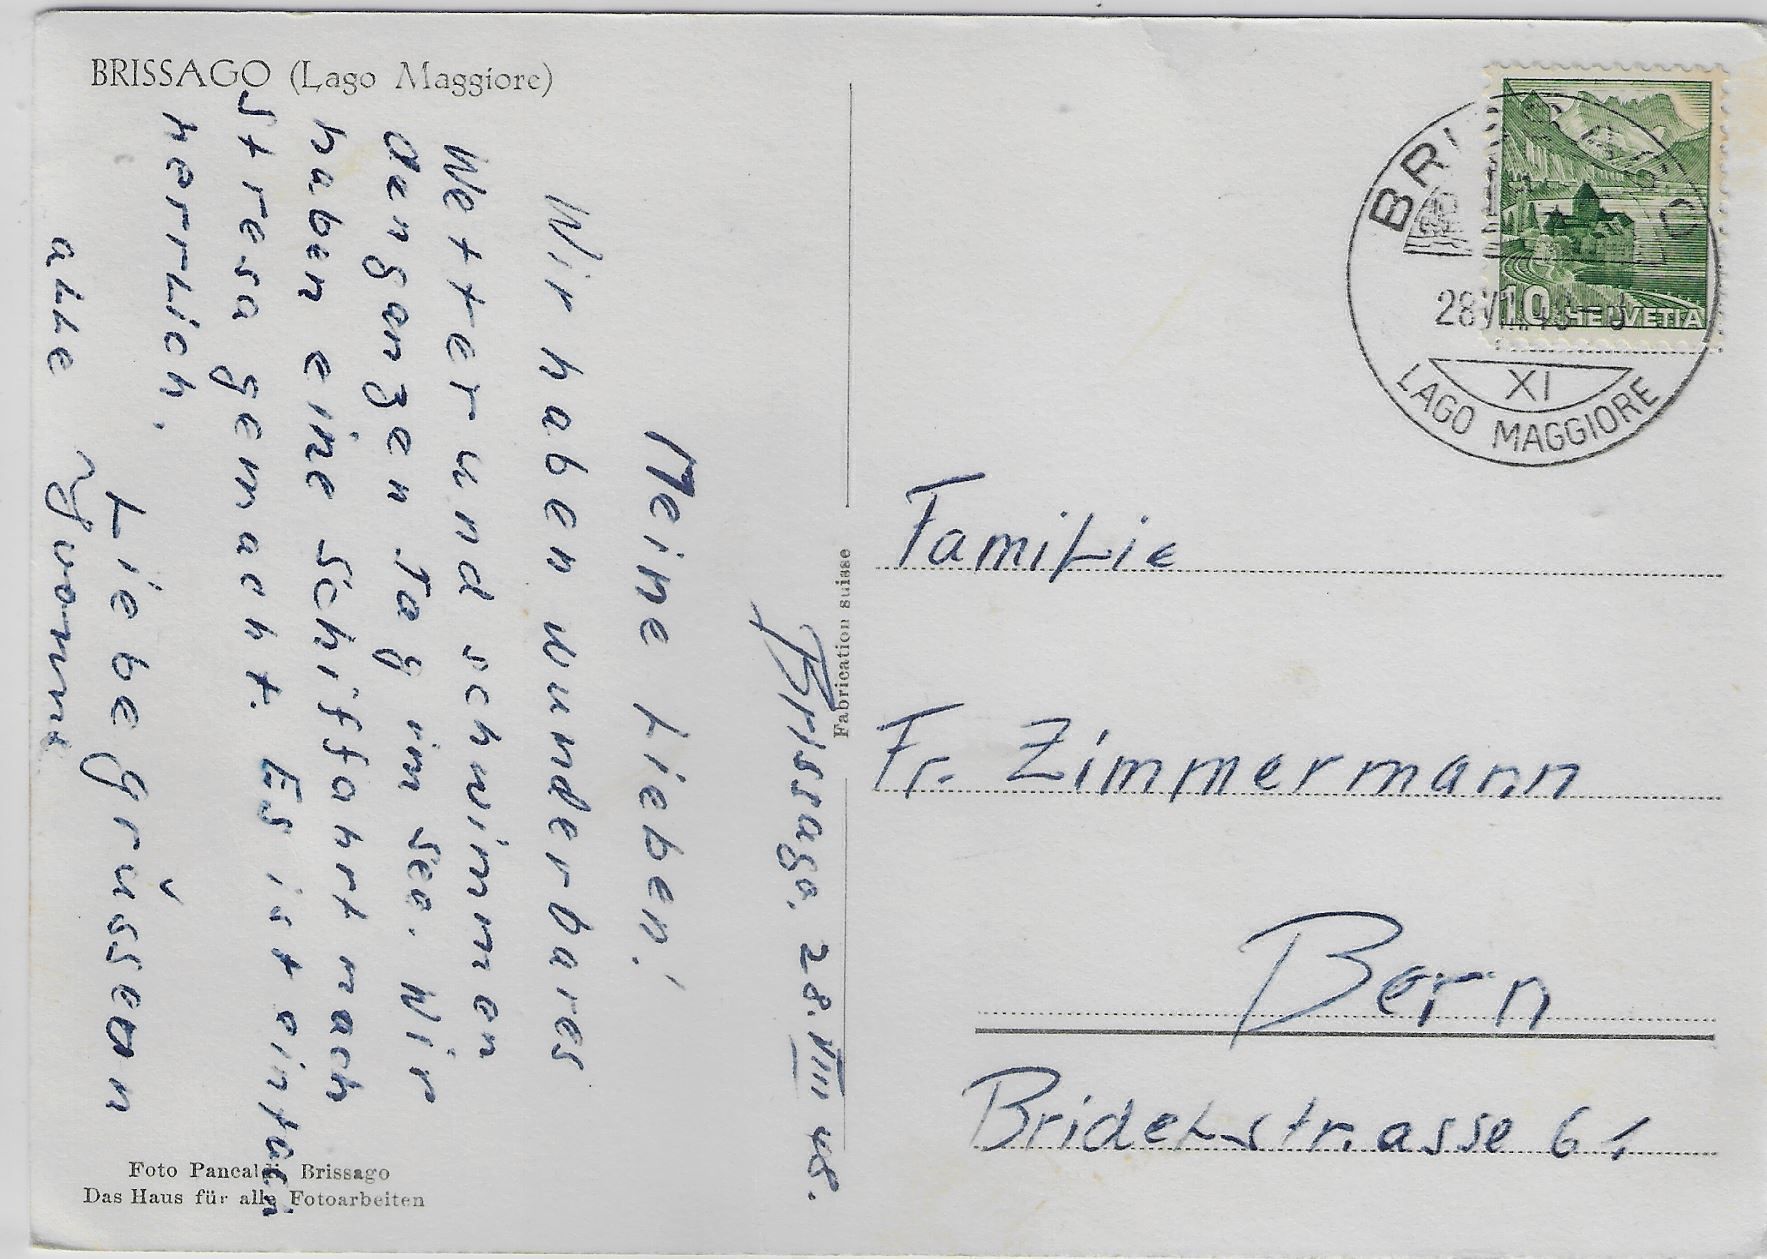 BRISSAGO (Lago Maggiore)
Brissago, 28. VIII 48.
Meine Lieben!
Wir haben wunderbares
Wetter und schwimmen
den ganzen Tag im See. Wir
haben eine Schiffahrt nach
Stresa gemacht. Es ist einfach
herrlich.
Liebe grüssen
alle Yvonne
Foto Pancaldi Brissago
Das Haus für alle Fotoarbeiten
Fabrication suisse
BRISSAGO
28.VIII.48
XI
LAGO MAGGIORE
10 HELVETIA
Familie
Fr. Zimmermann
Bern
Bridelstrasse